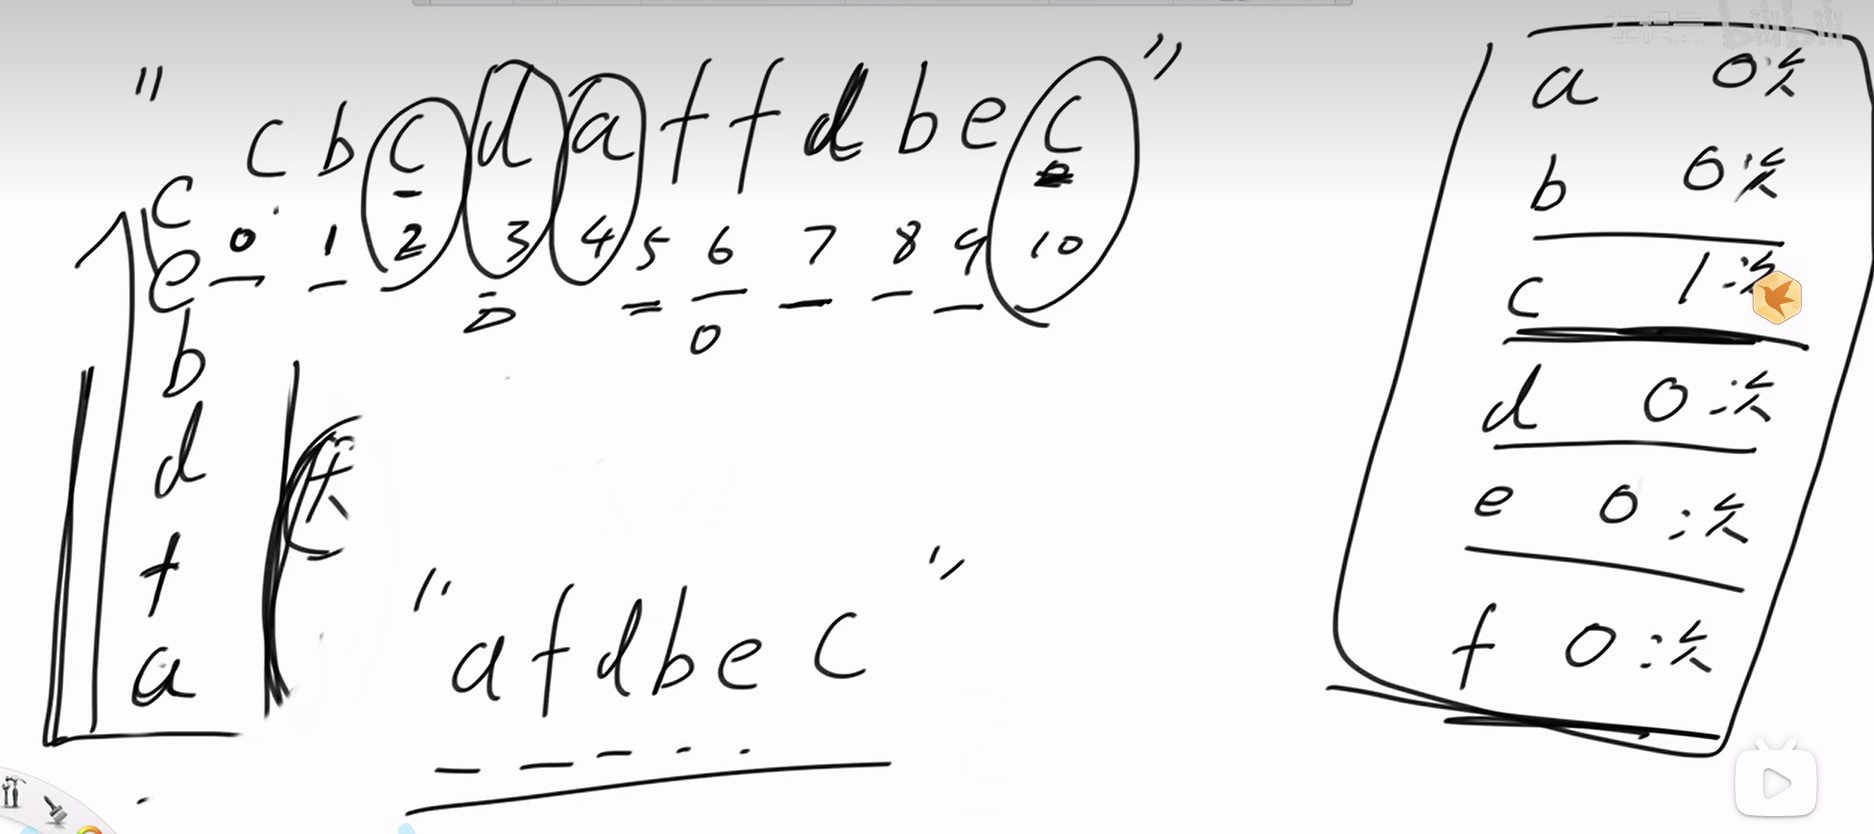 " c b c d a f f d b e c "
0 1 2 3 4 5 6 7 8 9 10
0
c
e
b
d
f
a
" a f d b e c "
a 0次
b 0次
c 1次
d 0次
e 0次
f 0次
bilibili